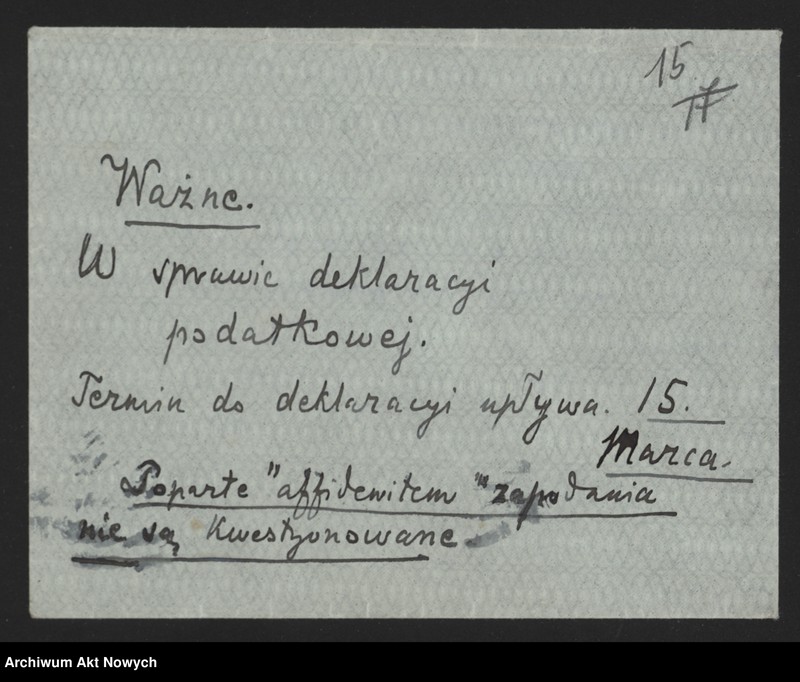 15
17
Ważne.
W sprawie deklaracyi
podatkowej.
Termin do deklaracyi upływa. 15.
Marca.
Poparte "affidewitem" zapodania
nie są kwestyonowane
Archiwum Akt Nowych